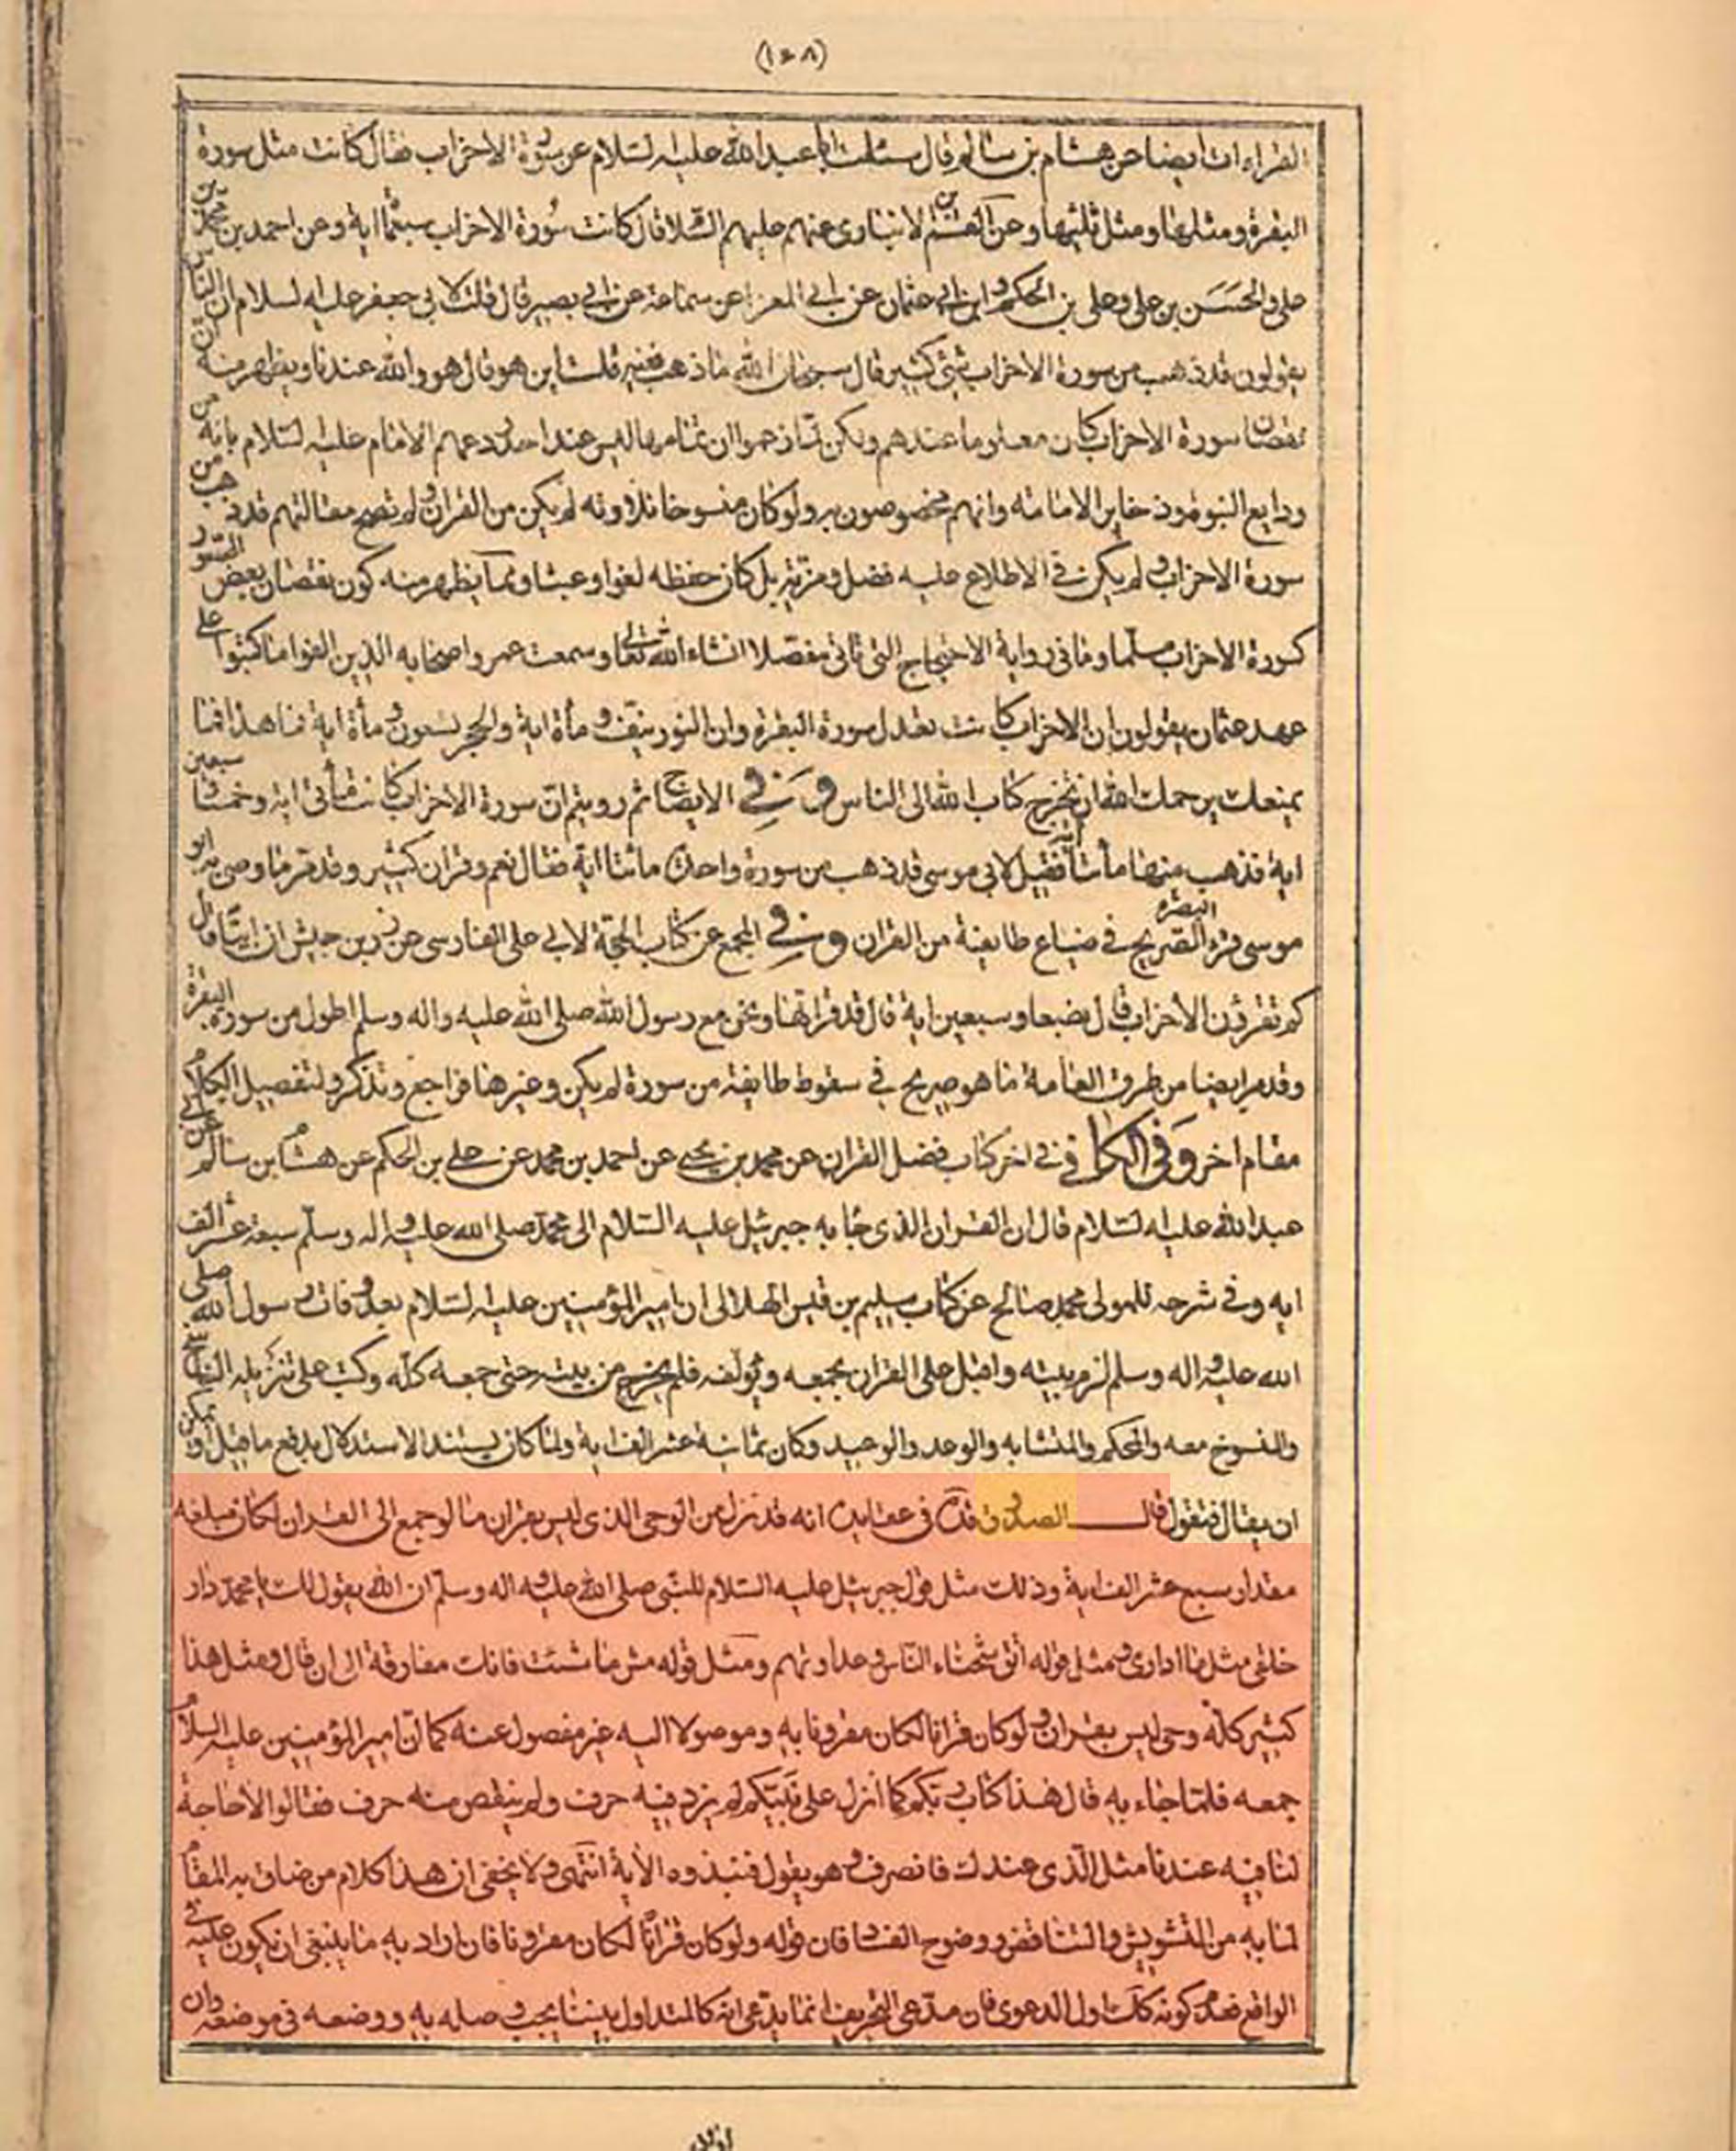 (١٠٨)
القراءات ايضا عن هشام بن سالم قال سئلت ابا عبدالله عليه السلام عن سورة الاحزاب فقال كانت مثل سورة
البقرة ومثلها ومثل ثلثيها وعن الانباري عنهم عليهم السلام قال كانت سورة الاحزاب سبعمأة اية وعن احمد بن محمد بن
علي والحسن بن علي وعلي بن الحكم و عثمان عن ابي المعزا عن سماعة عن ابي بصير قال قلت لابي جعفر عليه السلام ان الناس
يقولون قد ذهب من سورة الاحزاب شئ كثير قال سبحان الله ما ذهب قلت اين هو قال هو والله عندنا ويظهر منه ان
نقصان سورة الاحزاب كان معلوما عندهم ولكن زعموا ان تمامها ليس عند احد عهم الامام عليه السلام بانه من
ودايع النبوة وذخاير الامامة وانهم مخصوصون به ولو كان منسوخا تلاوته لم يكن من القران ولم تصح مقالتهم قد من
سورة الاحزاب ولم يكن في الاطلاع عليه فضل ومزية بل كان حفظه لغوا وعبثا ومما يظهر منه كون نقصان بعض السور
كسورة الاحزاب مسلما وما في رواية الاحتجاج التي تاتي مفصلا انشاء الله تعالى وسمعت عمر واصحابه الذين الفوا ما كتبوا على
عهد عثمان يقولون ان الاحزاب كانت تعدل سورة البقرة وان النور نيف ومأة اية والحجر تسعون ومأة اية فما هذا وما
يمنعك يرحمك الله ان تخرج كتاب الله الى الناس وفي الايضاح ثم رويتم ان سورة الاحزاب كانت مأتي اية وخمسا سبعين
اية فذهب منها مأتا اية فقيل لابي موسى قد ذهب من سورة واحدة مأتا اية فقال نعم وقران كثير وقد مر ما وصى به ابو
موسى قراء البصرة الصريح في ضياع طايفة من القران وفي المجمع عن كتاب الحجة لابي علي الفارسي عن زر بن حبيش ان ابيا قال
كم تقرؤن الاحزاب قال بضعا وسبعين اية قال قد قراتها ونحن مع رسول الله صلى الله عليه واله وسلم اطول من سورة البقرة
وقد مر ايضا من طرق العامة ما هو صريح في سقوط طايفة من سورة لم يكن وغيرها فراجع وتذكر ولتفصيل الكلام
مقام اخر وفي الكافي في اخر كتاب فضل القران عن محمد بن يحيى عن احمد بن محمد عن علي بن الحكم عن هشام بن سالم عن ابي
عبد الله عليه السلام قال ان القران الذي جا به جبرئيل عليه السلام الى محمد صلى الله عليه واله وسلم سبعة عشر الف
اية وفي شرحه للمولى محمد صالح عن كتاب سليم بن قيس الهلالي ان امير المؤمنين عليه السلام بعد وفات رسول الله صلى
الله عليه واله وسلم لزم بيته واقبل على القران يجمعه ويؤلفه فلم يخرج من بيته حتى جمعه كله وكتب على تنزيله الناسخ
والمنسوخ معه والمحكم والمتشابه والوعد والوعيد وكان ثمانية عشر الف اية ولما كان يستند الاستدلال بدفع ما قيل او يمكن
ان يقال فنقول قال الصدوق قده في عقايده انه قد نزل من الوحي الذي ليس بقران ما لو جمع الى القران لكان مبلغه
مقدار سبع عشر الف اية وذلك مثل قول جبرئيل عليه السلام للنبي صلى الله عليه واله وسلم ان الله يقول لك يا محمد دار
خلقي مثل ما اداري ومثل قوله اتق شحناء الناس وعداوتهم ومثل قوله عش ما شئت فانك مفارقه الى ان قال ومثل هذا
كثير كله وحي ليس بقران ولو كان قرانا لكان مقرونا به وموصولا اليه غير مفصول عنه كما ان امير المؤمنين عليه السلام
جمعه فلما جاء به قال هذا كتاب ربكم كما انزل على نبيكم لم يزد فيه حرف ولم ينقص منه حرف فقالوا لا حاجة
لنا فيه عندنا مثل الذي عندك فانصرف وهو يقول فنبذوه الاية انتهى ولا يخفى ان هذا كلام من ضاق به المقام
لما به من التشويش والتناقض ووضوح الفساد فان قوله ولو كان قرانا لكان مقرونا فان اراد به ما ينبغي ان يكون عليه في
الواقع فعدم كونه كك اول الدعوى فان مدعي التحريف انما يدعي انه كالمتداول بيننا يجب وصله به ووضعه في موضعه وان
اراد